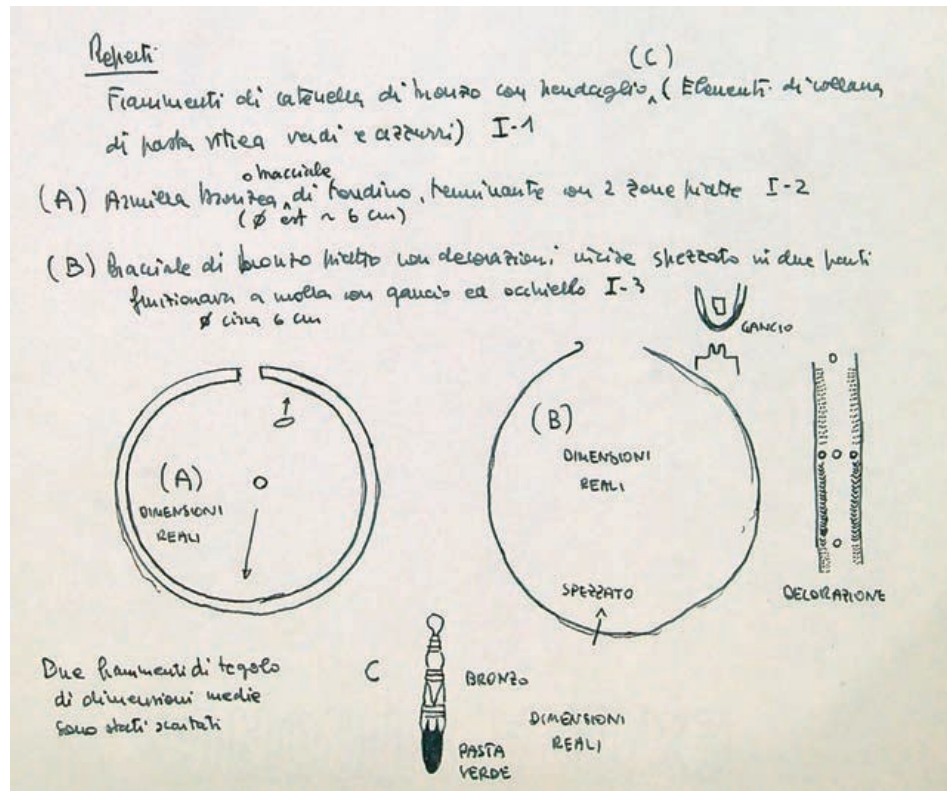 Reperti
(C)
Frammenti di catenella di bronzo con pendaglio ^ (Elementi di collana
di pasta vitrea verdi e azzurri) I-1
o bracciale
(A) Armilla bronzea ^ di tondino, terminante con 2 zone piatte I-2
(Ø est ~ 6 cm)
(B) Bracciale di bronzo piatto con decorazioni incise spezzato in due parti
funzionava a molla con gancio ed occhiello I-3
Ø circa 6 cm
GANCIO
(A)
DIMENSIONI
REALI
(B)
DIMENSIONI
REALI
SPEZZATO
DECORAZIONE
Due frammenti di tegolo
di dimensioni medie
sono stati scartati
C
BRONZO
DIMENSIONI
REALI
PASTA
VERDE